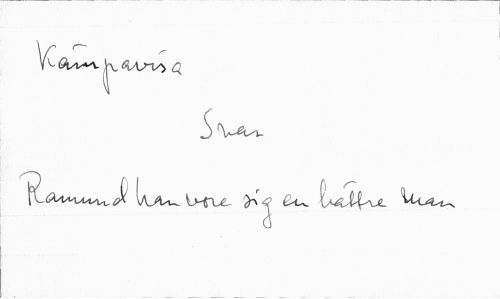 Kämpavisa
Svar
Ramund han vore sig en bättre man